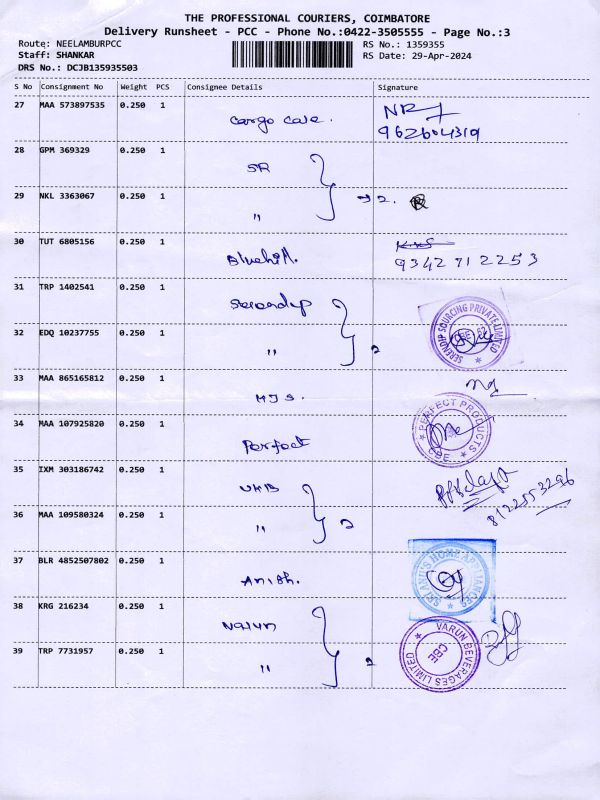 THE PROFESSIONAL COURIERS, COIMBATORE
Delivery Runsheet - PCC - Phone No.:0422-3505555 - Page No.:3
Route: NEELAMBURPCC
RS No.: 1359355
Staff: SHANKAR
RS Date: 29-Apr-2024
DRS No.: DCJB135935503
S No Consignment No Weight PCS Consignee Details Signature
27 MAA 573897535 0.250 1 Cargo Care.
962604319
28 GPM 369329 0.250 1 SR
29 NKL 3363067 0.250 1 " 2.
30 TUT 6805156 0.250 1 Bluehill.
9342712253
31 TRP 1402541 0.250 1 Serendip
SERENDIP SOURCING PRIVATE LIMITED
32 EDQ 10237755 0.250 1 " 2
33 MAA 865165812 0.250 1 MJS.
34 MAA 107925820 0.250 1 Perfect
PERFECT PRODUCTS
CBE
35 IXM 303186742 0.250 1 UKB
8122553296
36 MAA 109580324 0.250 1 " 2
37 BLR 4852507802 0.250 1 Anish.
HOME APPLIANCES
38 KRG 216234 0.250 1 Varun
VARUN BEVERAGES LIMITED
CBE
39 TRP 7731957 0.250 1 " 2